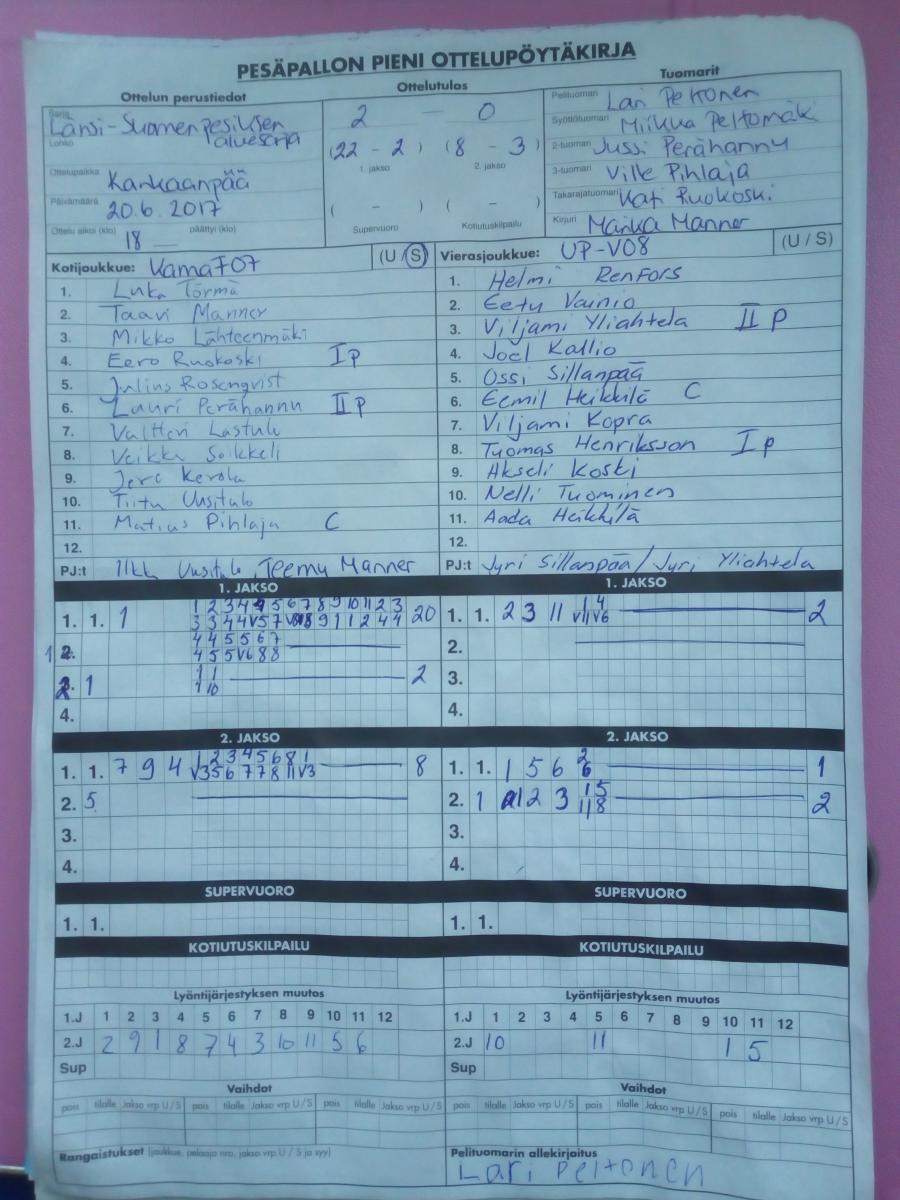 PESÄPALLON PIENI OTTELUPÖYTÄKIRJA
Ottelun perustiedot
Sarja Länsi-Suomen pesiksen
aluesarja
Lohko
Ottelupaikka Kankaanpää
Päivämäärä 20.6.2017
Ottelu alkoi (klo) 18 päättyi (klo)
Ottelutulos
2 — 0
(22 - 2) (8 - 3)
1. jakso 2. jakso
( - ) ( - )
Supervuoro Kotiutuskilpailu
Tuomarit
Pelituomari Lari Peltonen
Syöttötuomari Miikka Peltomäki
2-tuomari Jussi Perähannu
3-tuomari Ville Pihlaja
Takarajatuomari Kati Ruokoski
Kirjuri Marika Manner
Kotijoukkue: KamaF07 (U/S)
1. Luka Törmä
2. Taavi Manner
3. Mikko Lähteenmäki
4. Eero Ruokoski I p
5. Julius Rosenqvist
6. Luuri Perähannu II p
7. Valtteri Lastula
8. Veikka Soikkeli
9. Jere Kerola
10. Tiitu Uusitalo
11. Matius Pihlaja C
12.
PJ:t Uusitalo, Teemu Manner
Vierasjoukkue: UP-V08 (U/S)
1. Helmi Renfors
2. Eetu Vainio
3. Viljami Yliahtela II p
4. Joel Kallio
5. Ossi Sillanpää
6. Eemil Heikkilä C
7. Viljami Kopra
8. Tuomas Henriksson I p
9. Akseli Koski
10. Nelli Tuominen
11. Aada Heikkilä
12.
PJ:t Jyri Sillanpää / Jyri Yliahtela
1. JAKSO
1. 1. 1 20
2.
2 1 2
4.
1. JAKSO
1. 1. 2 3 11 2
2.
3.
4.
2. JAKSO
1. 1. 7 9 4 8
2. 5
3.
4.
2. JAKSO
1. 1. 1 5 6 1
2. 1 2 3 2
3.
4.
SUPERVUORO
1. 1.
SUPERVUORO
1. 1.
KOTIUTUSKILPAILU
KOTIUTUSKILPAILU
Lyöntijärjestyksen muutos
1.J 1 2 3 4 5 6 7 8 9 10 11 12
2.J 2 9 1 8 7 4 3 10 11 5 6
Sup
Lyöntijärjestyksen muutos
1.J 1 2 3 4 5 6 7 8 9 10 11 12
2.J 10 11 1 5
Sup
Vaihdot
pois tilalle Jakso vrp U/S pois tilalle Jakso vrp U/S pois tilalle Jakso vrp U/S
Vaihdot
pois tilalle Jakso vrp U/S pois tilalle Jakso vrp U/S pois tilalle Jakso vrp U/S
Rangaistukset (joukkue, pelaaja nro, jakso vrp U / S ja syy)
Pelituomarin allekirjoitus
Lari Peltonen